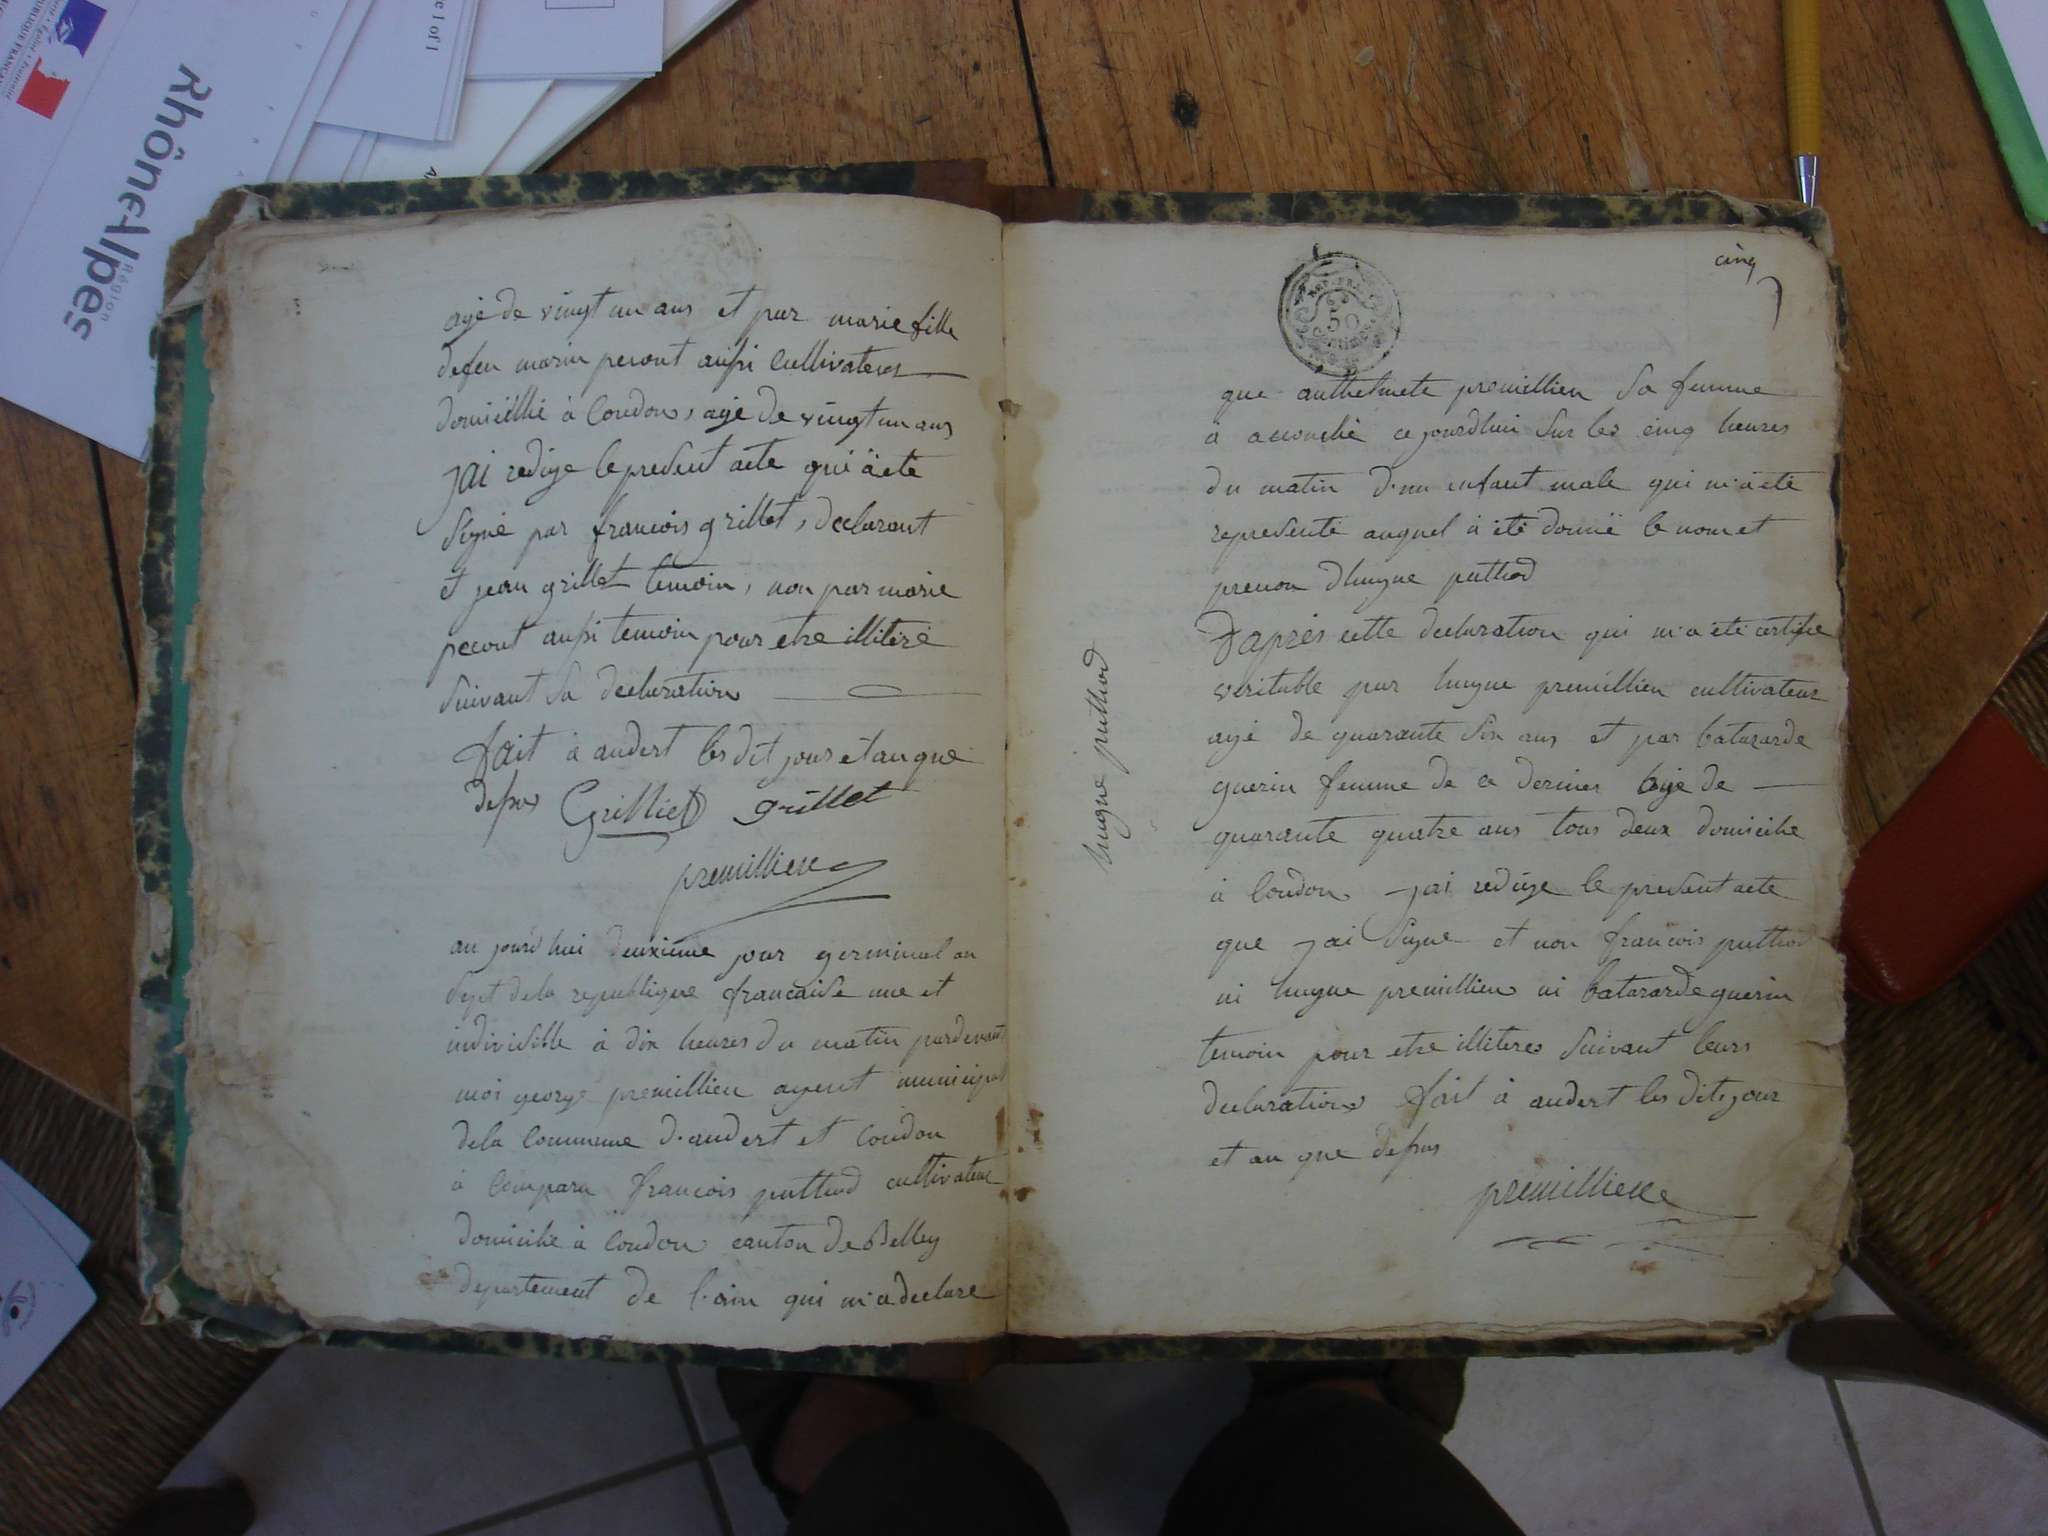 Rhône-Alpes
Région
e 1 of 1
agé de vingt un ans et par marie fille
defeu marin pecout aussi Cultivateur
domicillié à Coudon, agé de vingt un ans
jai redige le present acte qui à eté
signé par francois grillet, declarant
et jean grillet temoin, non par marie
pecout aussi temoin pour etre illiteré
suivant sa declaration
fait à andert les dit jour et an que
dessus Grilliet grillet
premillieu
au jourd'hui deuxieme jour germinal an
sept dela republique francaise une et
indivisible à dix heures du matin pardevant
moi george premillieu agent municipal
dela Commune d'andert et Coudon
à Comparu francois puthod cultivateur
domicilié à Coudon canton de Belley
departement de l'ain qui m'a declaré
cinq
50
Centimes
que anthelmete premillieu sa femme
à accouché ce jourdhui sur les cinq heures
du matin d'un enfant male qui m'a eté
representé auquel à eté donné le nom et
prenon d'hugue puthod
hugue puthod
D'après cette declaration qui m'a eté certifie
veritable par hugue premillieu cultivateur
agé de quarante six ans et par batazarde
guerin femme de ce dernier agé de
quarante quatre ans tous deux domicilié
à Coudon jai redige le present acte
que jai signe et non francois puthod
ni hugue premillieu ni batazarde guerin
temoin pour etre illiteres suivant leurs
declarations fait à andert les dits jour
et an que dessus
premillieu